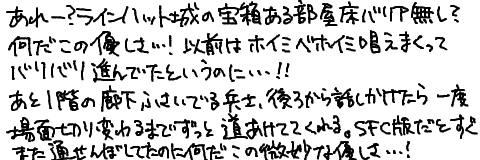 あれー?ラインハット城の宝箱ある部屋床バリア無しで
何だこの優しさ…!以前はホイミベホイミ唱えまくって
バリバリ進んでたというのに…!!
あと1階の廊下ふさいでる兵士、後ろから話しかけたら一度
場面切り変わるまでずっと道あけててくれる。SFC版だとすぐ
また通せんぼしてたのに何だこの微妙な優しさ…!